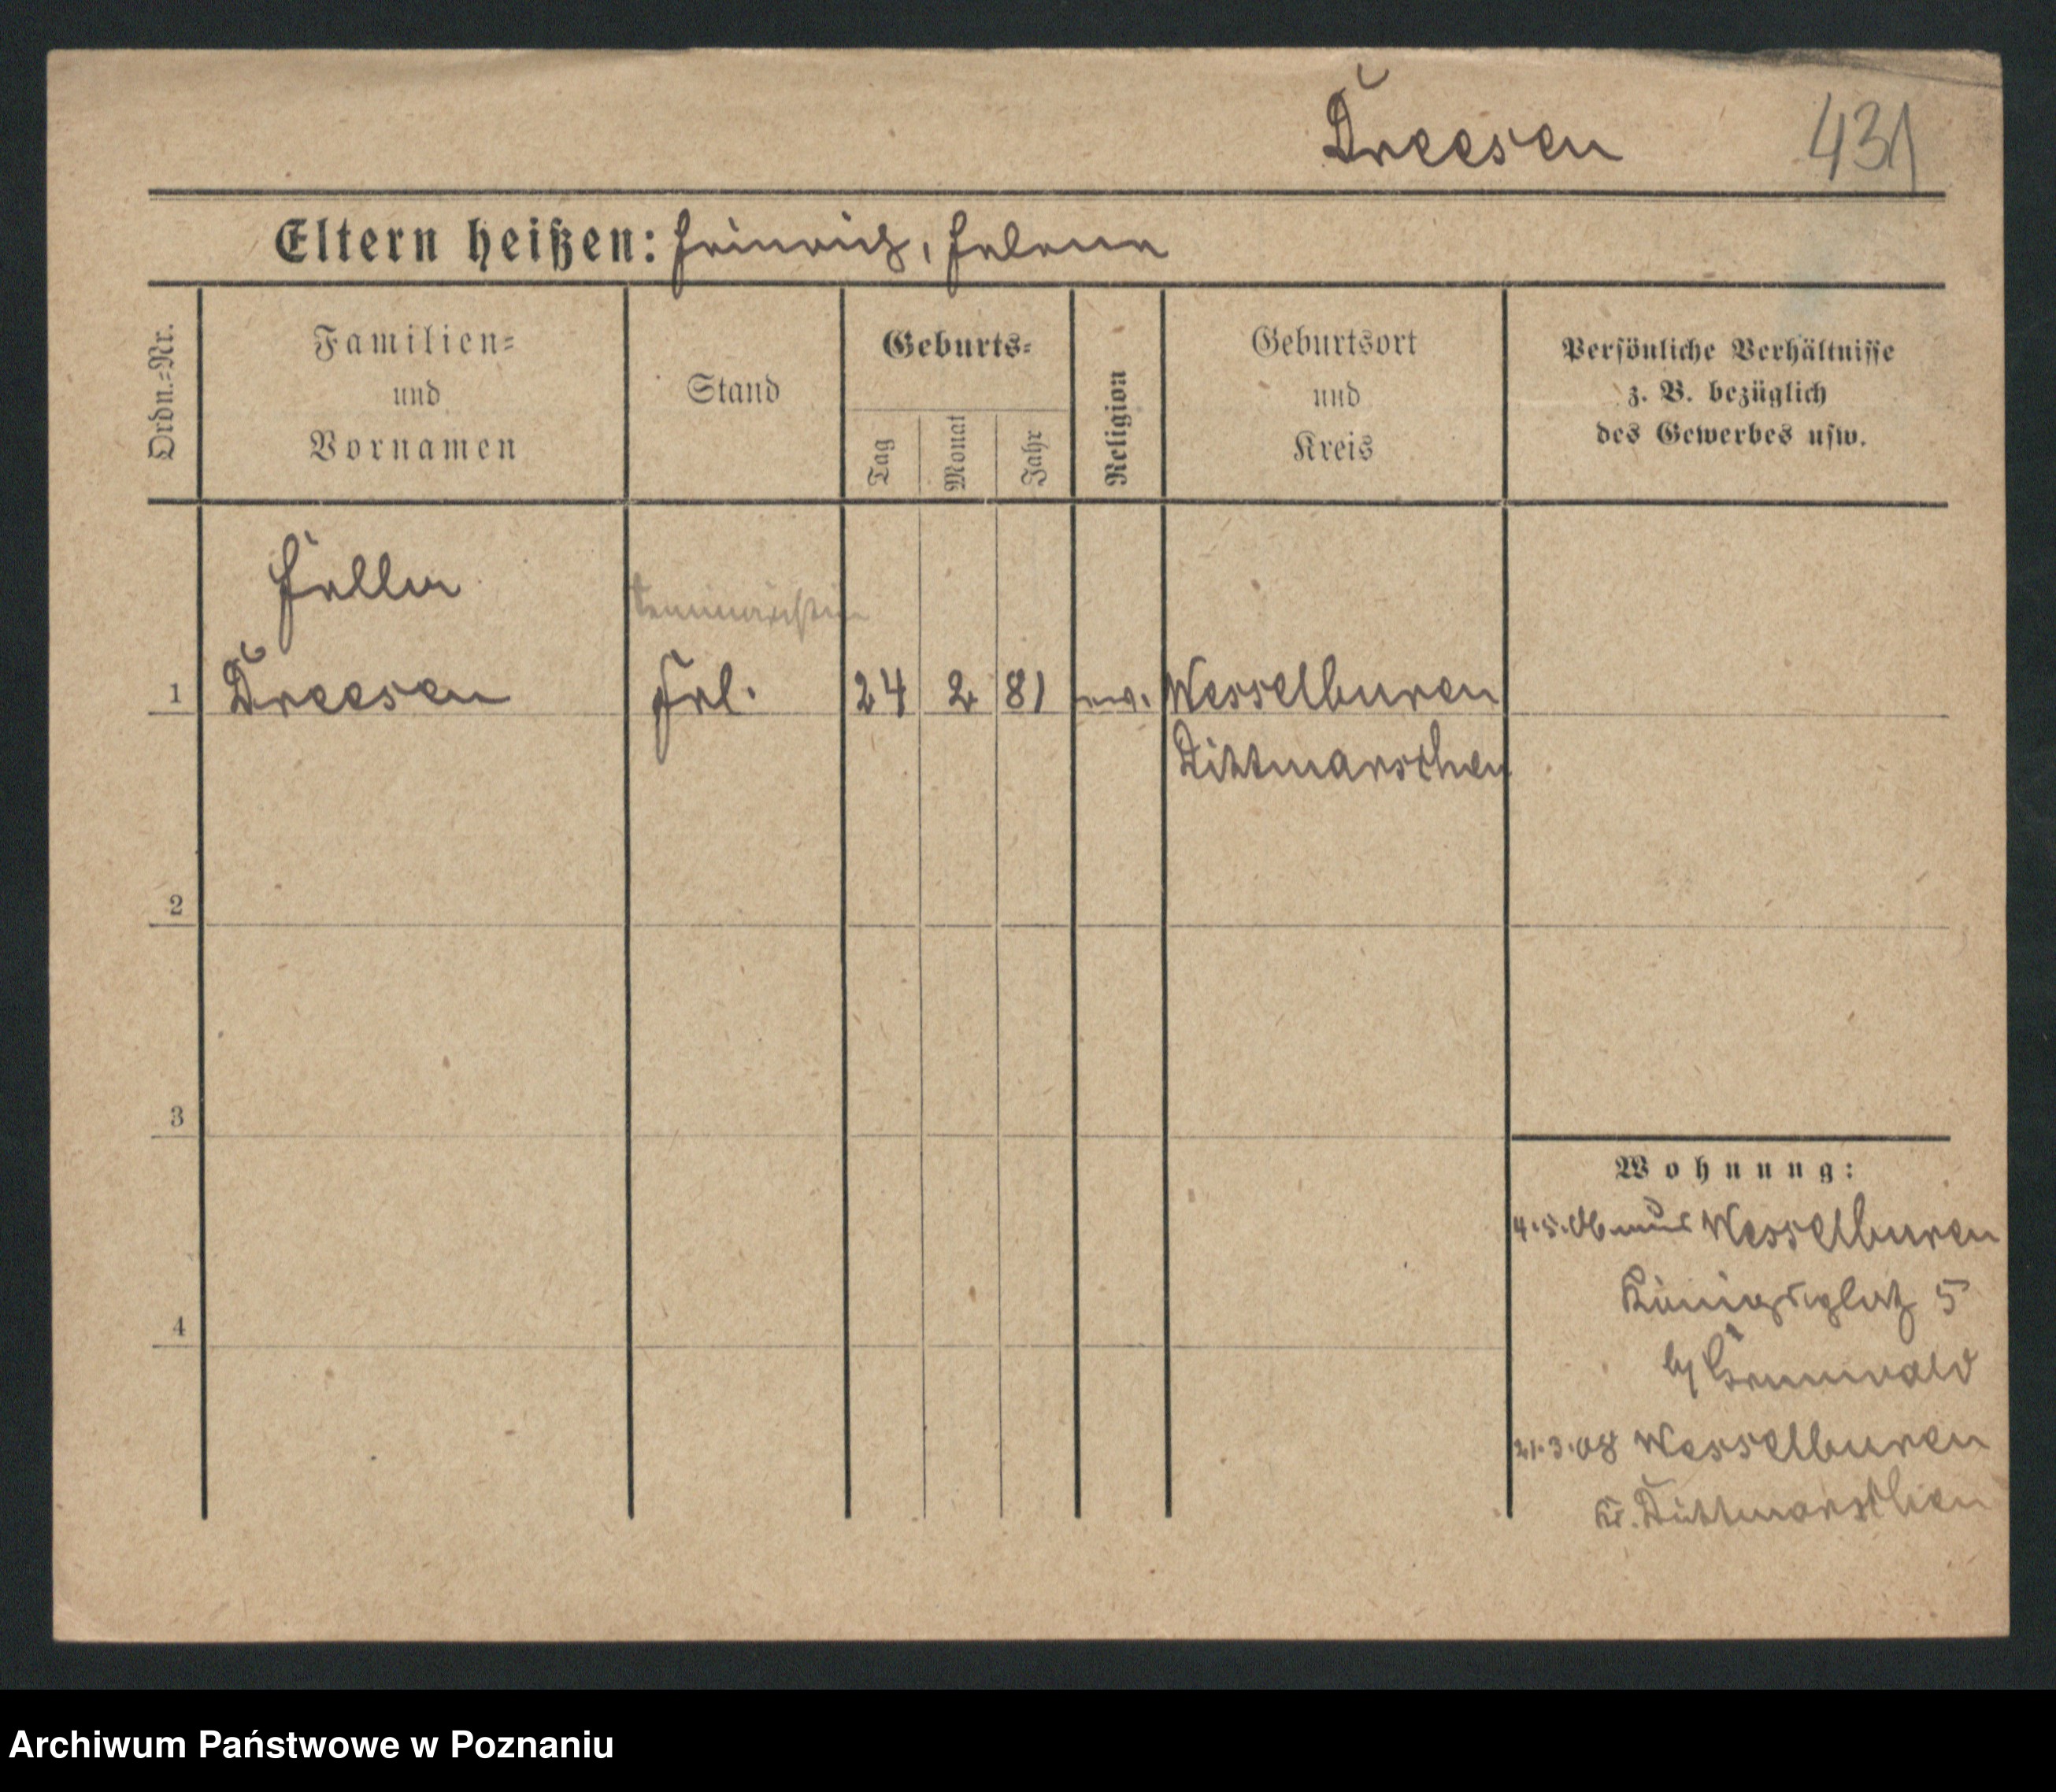 Dreesen 431
Eltern heißen: Heinrich, Helene
Ordn.-Nr.
Familien-
und
Vornamen
Stand
Geburts-
Tag
Monat
Jahr
Religion
Geburtsort
und
Kreis
Persönliche Verhältnisse
z. B. bezüglich
des Gewerbes usw.
1 Dreesen Frl. 24 2 81 ev. Wesselburen
Dittmarschen
2
3
4
Wohnung:
4.5.06 aus Wesselburen
Königsplatz 5
b/ Grunwald
21.3.08 Wesselburen
Kr. Dittmarschen
Archiwum Państwowe w Poznaniu